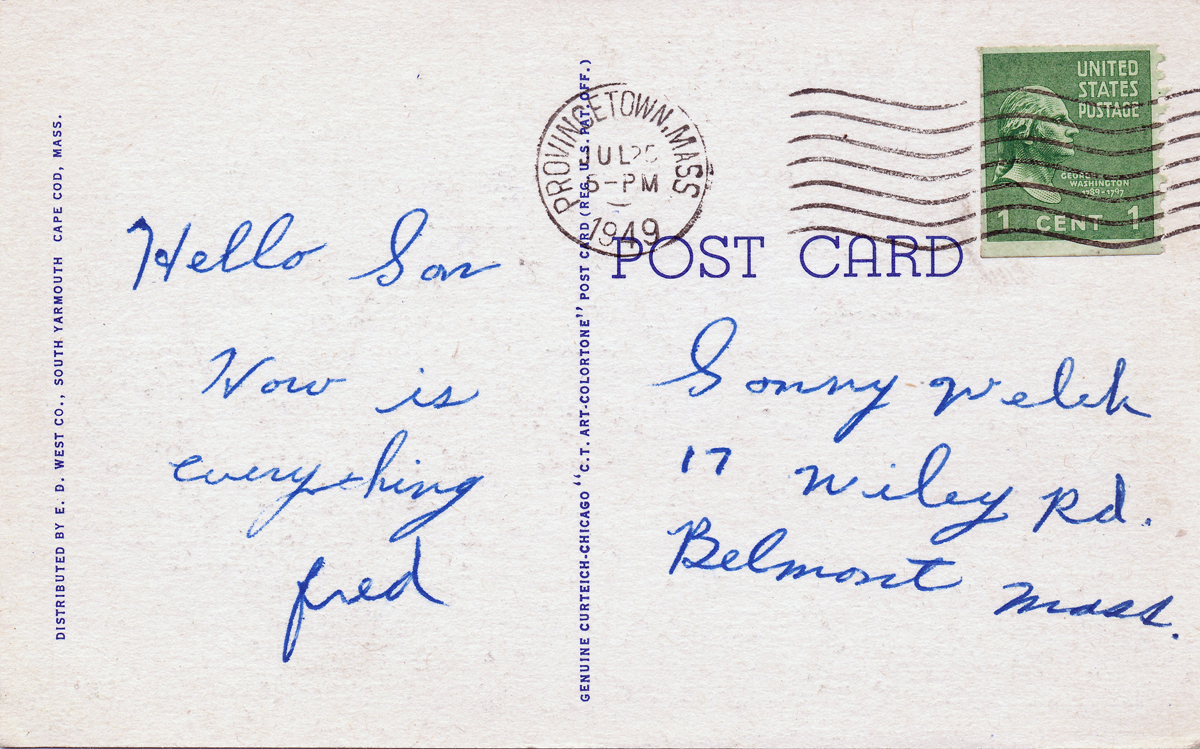 DISTRIBUTED BY E. D. WEST CO., SOUTH YARMOUTH CAPE COD, MASS.
Hello Son
How is
everything
fred
GENUINE CURTEICH-CHICAGO "C.T. ART-COLORTONE" POST CARD (REG. U.S. PAT. OFF.)
PROVINCETOWN, MASS
JUL 25
5-PM
1949
UNITED
STATES
POSTAGE
GEORGE
WASHINGTON
1789-1797
1 CENT 1
POST CARD
Sonny Welch
17 Wiley Rd.
Belmont Mass.